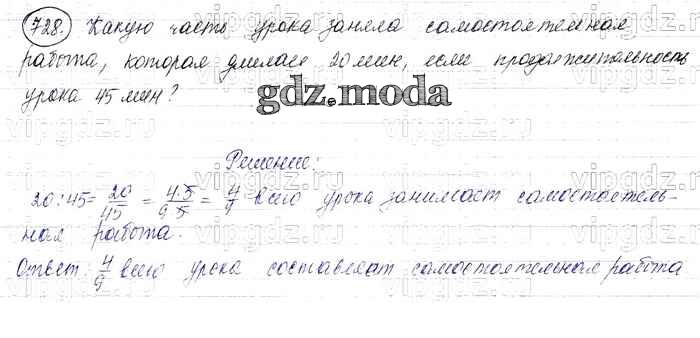 728. Какую часть урока заняла самостоятельная
работа, которая длилась 20 мин, если продолжительность
урока 45 мин?
gdz.moda
Решение:
20:45= 20/45 = 4·5/9·5 = 4/9 всего урока занимает самостоятель-
ная работа.
Ответ: 4/9 всего урока составляет самостоятельная работа
vipgdz.ru